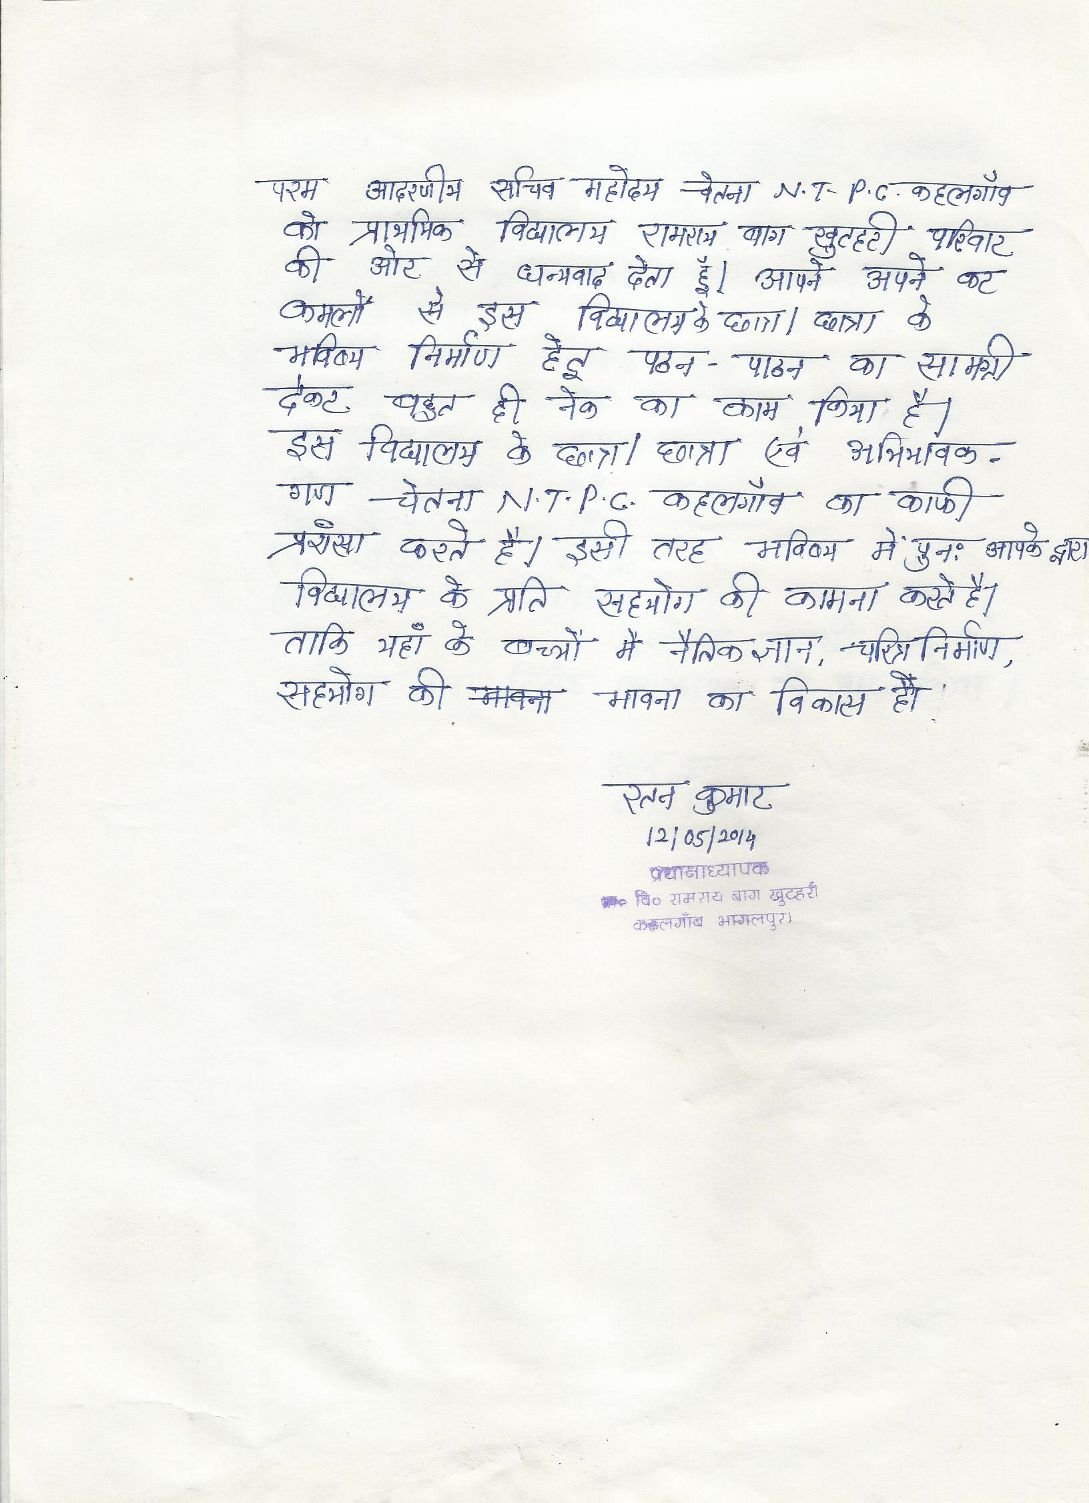 परम आदरणीय सचिव महोदय चेतना N.T.P.C. कहलगाँव
को प्राथमिक विद्यालय रामराय बाग खुटहरी परिवार
की ओर से धन्यवाद देता हूँ। आपने अपने कर
कमलों से इस विद्यालय के छात्र/छात्रा के
भविष्य निर्माण हेतु पठन-पाठन का सामग्री
देकर बहुत ही नेक का काम किया है।
इस विद्यालय के छात्र/छात्रा एवं अभिभावक-
गण चेतना N.T.P.C. कहलगाँव का काफी
प्रशंसा करते है। इसी तरह भविष्य में पुनः आपके द्वारा
विद्यालय के प्रति सहयोग की कामना करते है।
ताकि यहाँ के बच्चों में नैतिक ज्ञान, चरित्र निर्माण,
सहयोग की भावना भावना का विकास हो।
रतन कुमार
12/05/2014
प्रधानाध्यापक
वि० रामराय बाग खुटहरी
कहलगाँव भागलपुर।